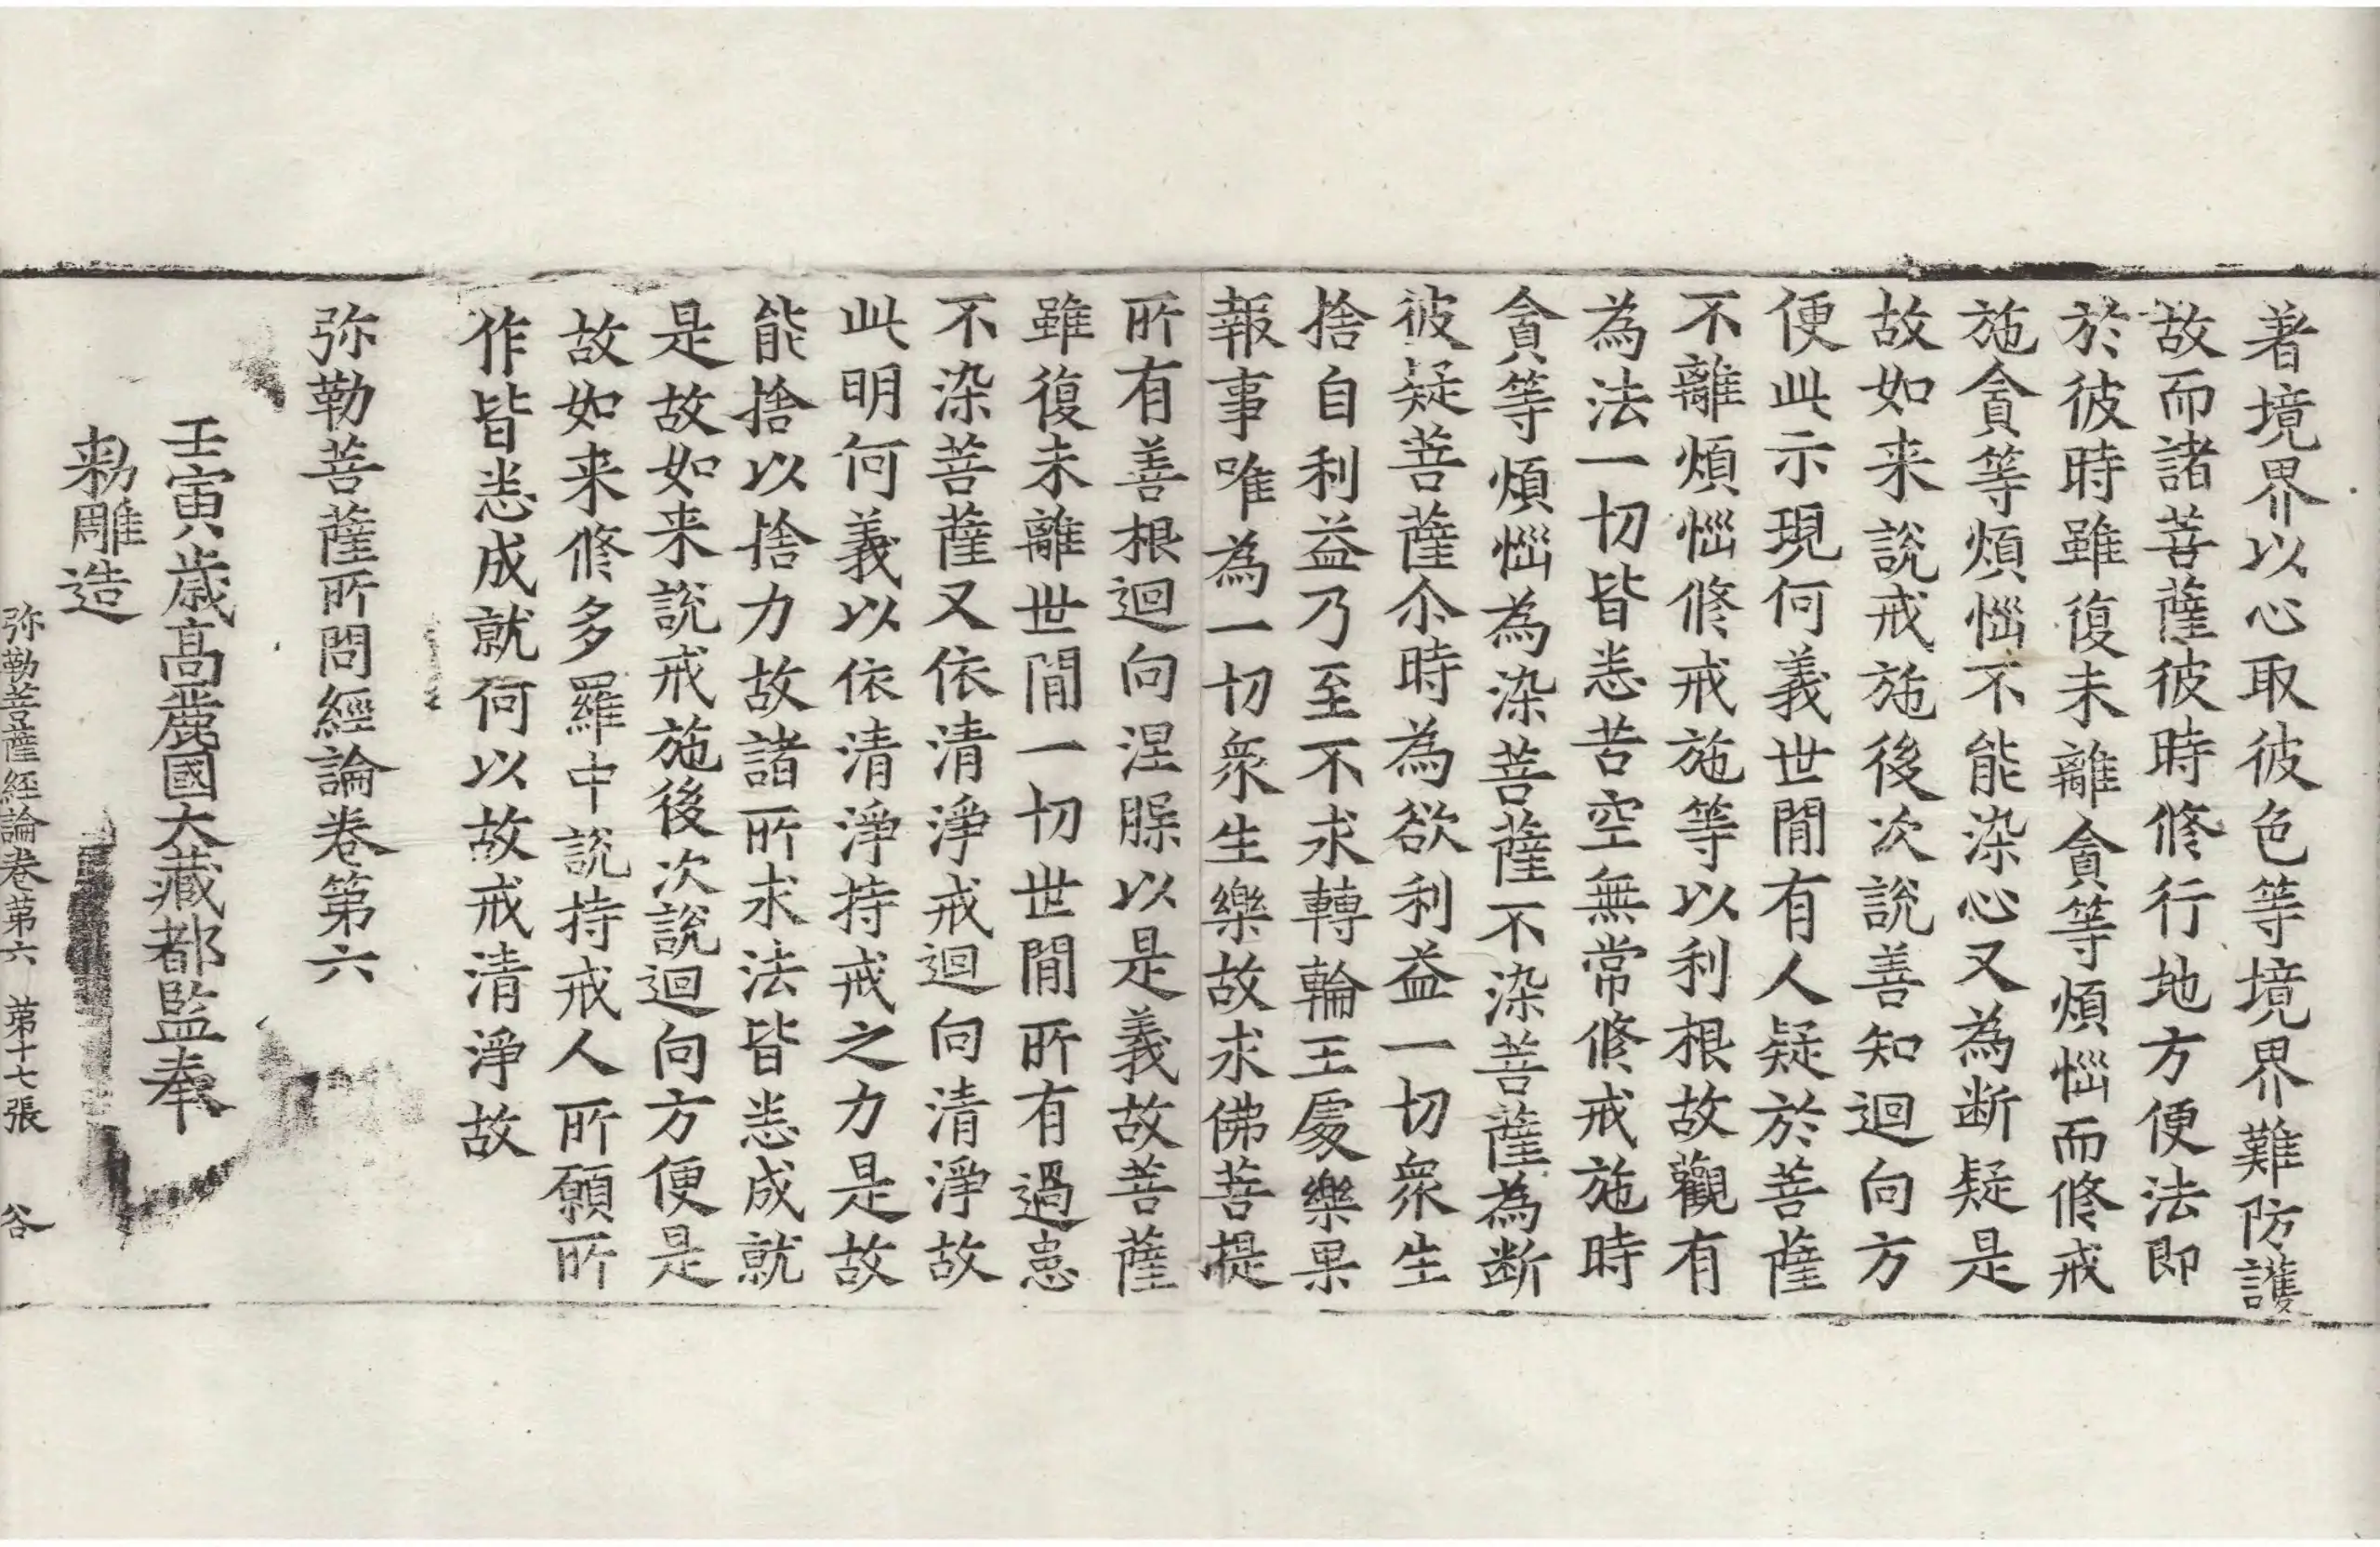 著境界以心取彼色等境界難防護
故而諸菩薩彼時修行地方便法即
於彼時雖復未離貪等煩惱而修戒
施貪等煩惱不能染心又為断疑是
故如来說戒施後次說善知迴向方
便此示現何義世閒有人疑於菩薩
不離煩惱修戒施等以利根故觀有
為法一切皆悉苦空無常修戒施時
貪等煩惱為染菩薩不染菩薩為断
彼疑菩薩尒時為欲利益一切衆生
捨自利益乃至不求轉輪王處樂果
報事唯為一切衆生樂故求佛菩提
所有善根迴向涅槃以是義故菩薩
雖復未離世閒一切世閒所有過患
不染菩薩又依清淨戒迴向清淨故
此明何義以依清淨持戒之力是故
能捨以捨力故諸所求法皆悉成就
是故如来說戒施後次說迴向方便是
故如来修多羅中說持戒人所願所
作皆悉成就何以故戒清淨故
弥勒菩薩所問經論卷第六
壬寅歲高麗國大藏都監奉
勑雕造
弥勒菩薩経論卷苐六 苐十七張 谷